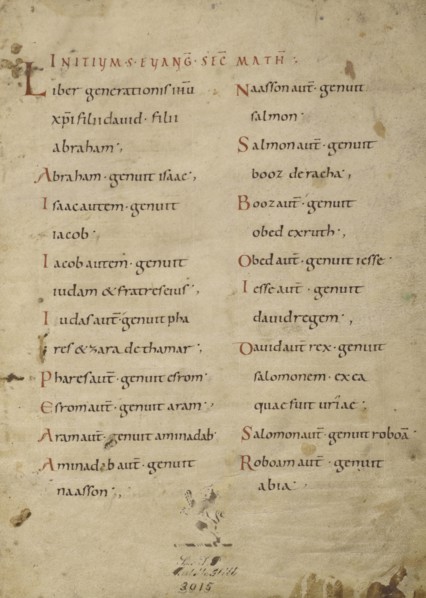 INITIUM·S·EUANG̅·SEC̅ MATH̅·
Liber generationis ihu̅
xp̅i filii david· filii
abraham·,
Abraham·genuit isaac·,
Isaac autem·genuit
iacob·
Iacob autem·genuit
iudam & fratres eius·,
Iudas aut̅·genuit pha
res & zara de thamar·,
Phares aut̅·genuit esrom·
Esrom aut̅·genuit aram·
Aram aut̅·genuit aminadab·
Aminadab aut̅·genuit
naasson·,
Naasson aut̅·genuit
salmon·
Salmon aut̅·genuit
booz de racha·,
Booz aut̅·genuit
obed ex ruth·,
Obed aut̅·genuit iesse·
Iesse aut̅·genuit
david regem·,
David aut̅ rex·genuit
salomonem·ex ea
quae fuit uriae·
Salomon aut̅·genuit roboa̅·
Roboam aut̅·genuit
abia·
3915